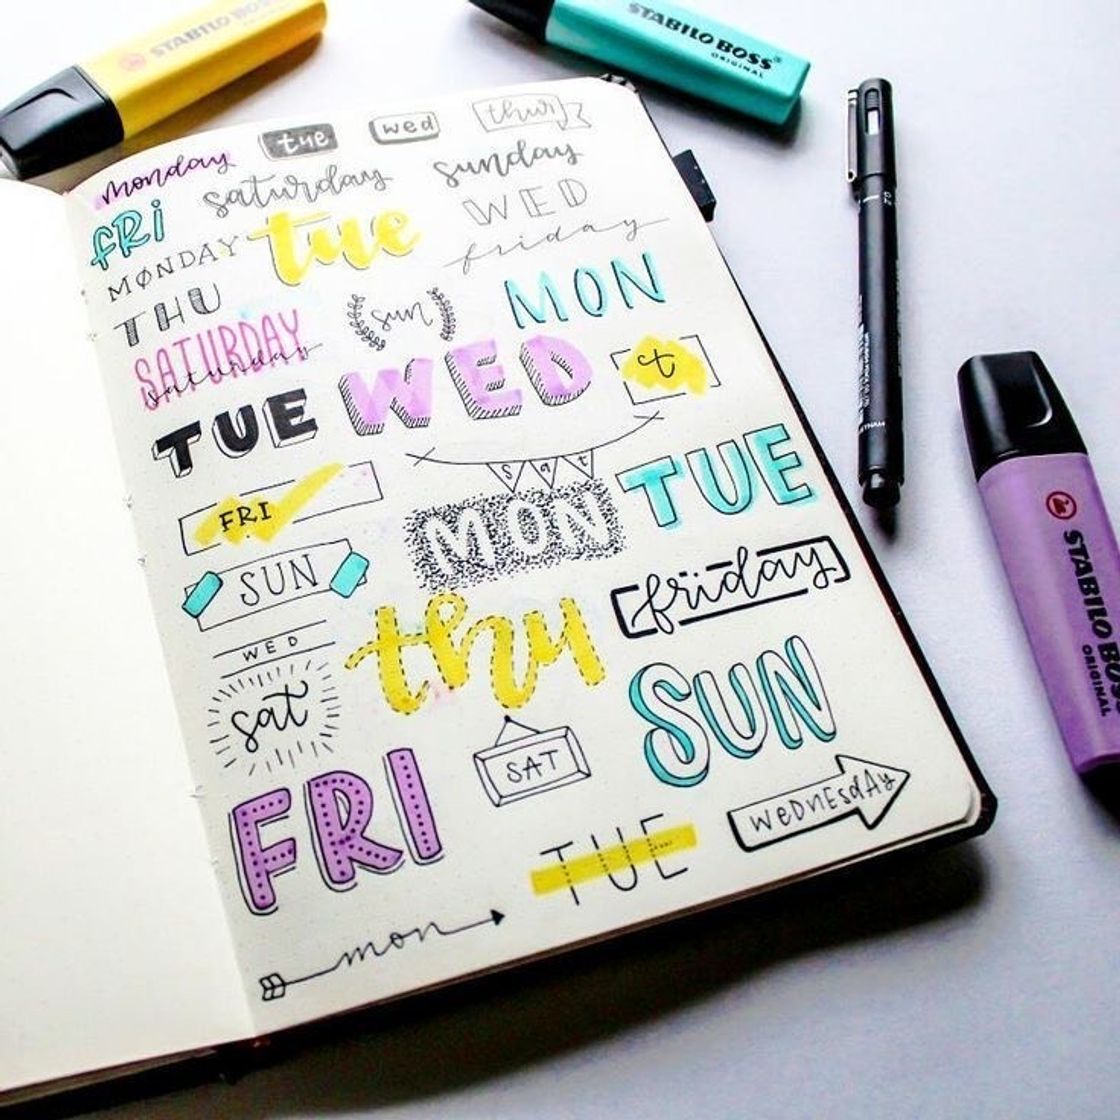 STABILO BOSS
ORIGINAL
STABILO BOSS
ORIGINAL
monday tue wed thur
saturday sunday
FRI tue WED
MØNDAY friday
THU sun MON
SATURDAY
saturday
TUE WED t
sat
FRI MON TUE
SUN friday
WED thu
sat SUN
SAT
FRI WEDNESdAY
TUE
mon
STABILO BOSS
ORIGINAL